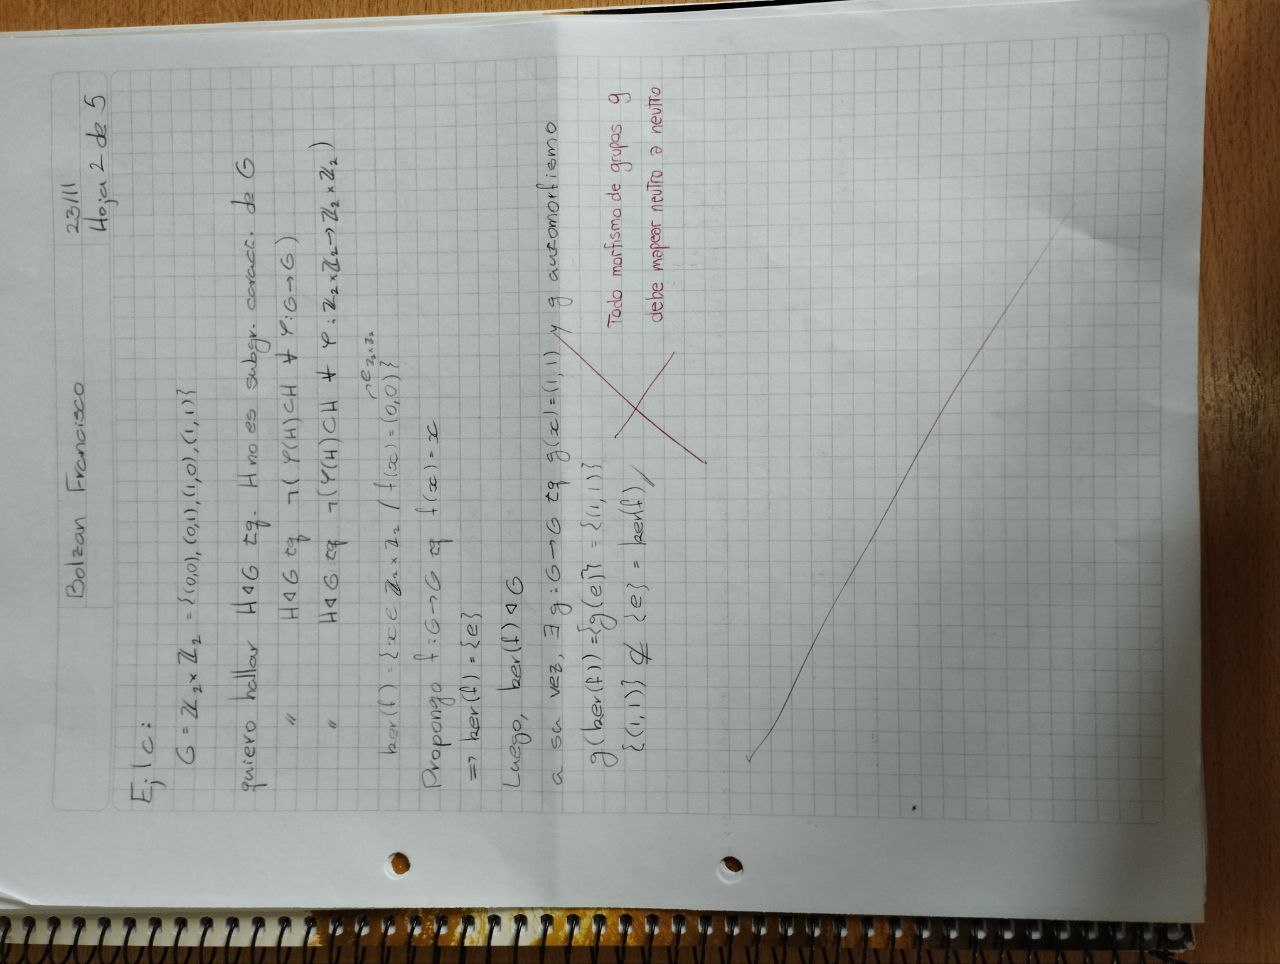 Bolzan Francisco
23/11
Hoja 2 de 5
Ej 1c:
G = ℤ₂×ℤ₂ = {(0,0), (0,1), (1,0), (1,1)}
quiero hallar H◁G tq. H no es subgr. caract. de G
〃 H◁G tq ¬(φ(H)⊂H ∀ φ:G→G)
〃 H◁G tq ¬(φ(H)⊂H ∀ φ: ℤ₂×ℤ₂→ℤ₂×ℤ₂)
e ℤ₂×ℤ₂
ker(f) = {x∈ ℤ₂×ℤ₂ / f(x) = (0,0)}
Propongo f:G→G tq f(x)=x
=> ker(f) = {e}
Luego, ker(f)◁G
a su vez, ∃g:G→G tq g(x)=(1,1) y g automorfismo
g(ker(f))={g(e)} = {(1,1)}
{(1,1)} ⊄ {e} = ker(f)
Todo morfismo de grupos g
debe mapear neutro a neutro